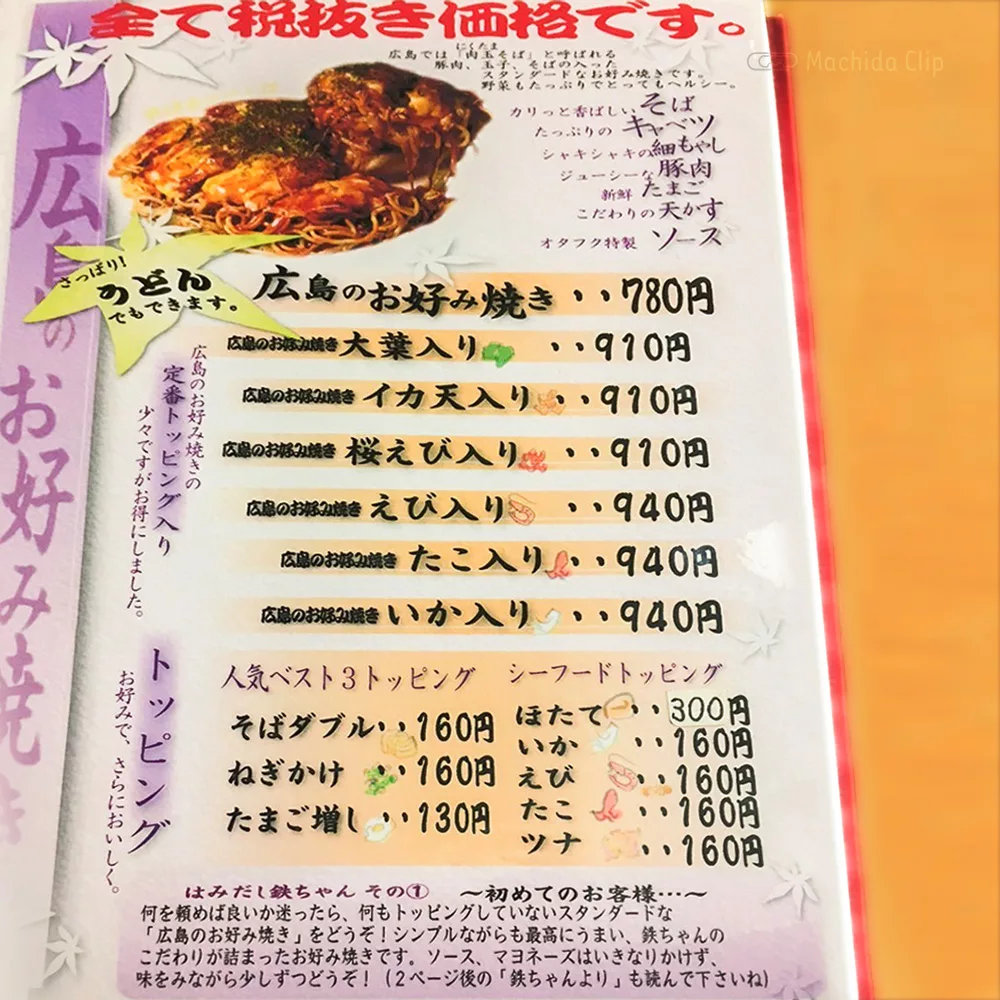 全て税抜き価格です。
Machida Clip
広島では「肉玉そば」と呼ばれる
にくたま
豚肉、玉子、そばの入った
スタンダードなお好み焼きです。
野菜もたっぷりでとってもヘルシー。
カリっと香ばしいそば
たっぷりのキャベツ
シャキシャキの細もやし
ジューシーな豚肉
新鮮たまご
こだわりの天かす
オタフク特製ソース
広島のお好み焼き
さっぱり!
うどん
でもできます。
広島のお好み焼き・・780円
広島のお好み焼き大葉入り・・910円
広島のお好み焼きイカ天入り・・910円
広島のお好み焼き桜えび入り・・910円
広島のお好み焼きえび入り・・940円
広島のお好み焼きたこ入り・・940円
広島のお好み焼きいか入り・・940円
広島のお好み焼きの
定番トッピング入り
少々ですがお得にしました。
トッピング
お好みで、さらにおいしく。
人気ベスト3トッピング
そばダブル・・160円
ねぎかけ・・160円
たまご増し・・130円
シーフードトッピング
ほたて・・300円
いか・・160円
えび・・160円
たこ・・160円
ツナ・・160円
はみだし鉄ちゃん その① 〜初めてのお客様…〜
何を頼めば良いか迷ったら、何もトッピングしていないスタンダードな
「広島のお好み焼き」をどうぞ！シンプルながらも最高にうまい、鉄ちゃんの
こだわりが詰まったお好み焼きです。ソース、マヨネーズはいきなりかけず、
味をみながら少しずつどうぞ！（2ページ後の「鉄ちゃんより」も読んで下さいね）